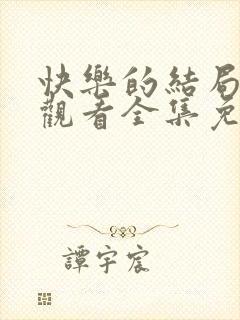 快樂的結局
觀看全集免
譚宇宸